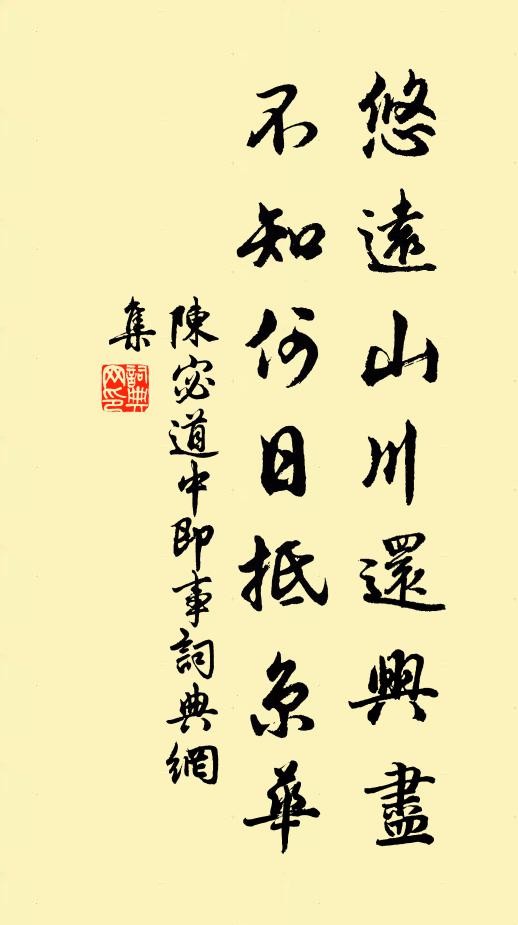 悠遠山川還興盡
不知何日抵京華
陳宓道中即事詞典網
集
詞典
网印